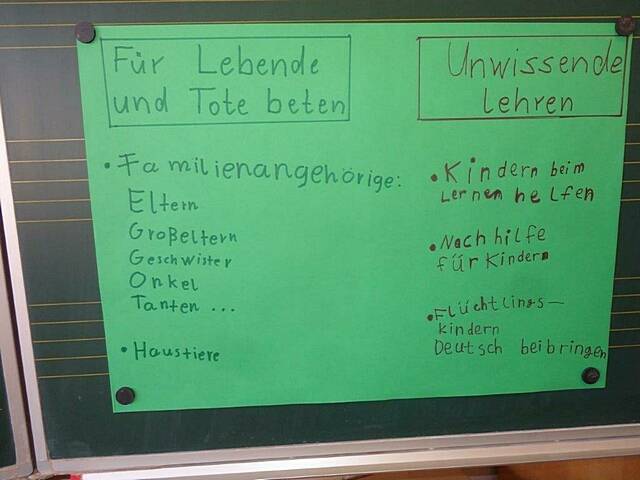 Für Lebende
und Tote beten
• Familienangehörige:
Eltern
Großeltern
Geschwister
Onkel
Tanten ...
• Haustiere
Unwissende
lehren
• Kindern beim
Lernen helfen
• Nachhilfe
für Kindern
• Flüchtlings-
kindern
Deutsch beibringen